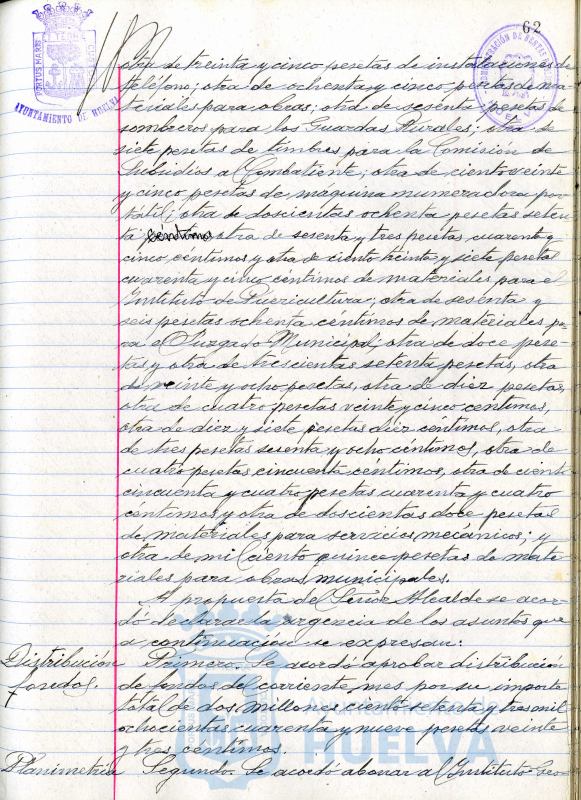 62
AYUNTAMIENTO DE HUELVA
otra de treinta y cinco pesetas de instalaciones de
teléfono; otra de ochenta y cinco pesetas de ma-
teriales para obras; otra de sesenta pesetas de
sombreros para los Guardas Rurales; otra de
siete pesetas de timbres para la Comisión de
Subsidios al Combatiente; otra de ciento veinte
y cinco pesetas de máquina numeradora por-
tátil; otra de doscientas ochenta pesetas seten-
ta céntimos otra de sesenta y tres pesetas cuarenta y
cinco céntimos y otra de ciento treinta y siete pesetas
cuarenta y cinco céntimos de materiales para el
Instituto de Puericultura; otra de sesenta y
seis pesetas ochenta céntimos de materiales pa-
ra el Juzgado Municipal; otra de doce pese-
tas y otra de trescientas setenta pesetas, otra
de veinte y ocho pesetas, otra de diez pesetas,
otra de cuatro pesetas veinte y cinco centimos,
otra de diez y siete pesetas diez centimos, otra
de tres pesetas sesenta y ocho céntimos, otra de
cuatro pesetas cincuenta céntimos, otra de ciento
cincuenta y cuatro pesetas cuarenta y cuatro
centimos y otra de doscientas doce pesetas
de materiales para servicios mecánicos; y
otra de mil ciento quince pesetas de mate-
riales para obras municipales.
A propuesta del Señor Alcalde se acor-
dó declarar la urgencia de los asuntos que
a continuación se expresan:
Distribución fondos.
Primero. Se acordó aprobar distribución
de fondos del corriente mes por su importe
total de dos millones ciento setenta y tres mil
ochocientas cuarenta y nueve pesetas veinte
y tres centimos.
Planimetria
Segundo. Se acordó abonar al Instituto Geo-
HUELVA